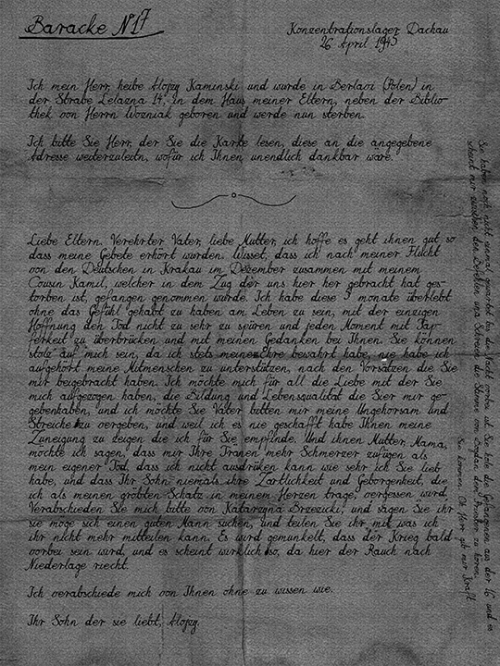 Baracke N17
Konzentrationslager Dachau
26 April 1945
Ich mein Herr, heibe Alojzy Kaminski und wurde in Berlavi (Polen) in
der Strabe Zelazna 14, in dem Haus meiner Eltern, neben der Biblio-
thek von Herrn Wozniak geboren und werde nun sterben.
Ich bitte Sie Herr, der Sie die Karte lesen, diese an die angegebene
Adresse weiterzuleitn, wofür ich Ihnen unendlich dankbar wäre.
Liebe Eltern, Verehrter Vater, liebe Mutter, ich hoffe es geht ihnen gut so
dass meine Gebete erhört wurden. Wisset, dass ich nach meiner Flucht
von den Deutschen in Krakau im Dezember zusammen mit meinem
Cousin Kamil, welcher in dem Zug der uns hier her gebracht hat ges-
torben ist, gefangen genommen wurde. Ich habe diese 3 monate überlebt
ohne das Gefühl gehabt zu haben am Leben zu sein, mit der einzigen
Hoffnung den Tod nicht zu sehr zu spüren und jeden Moment mit Tap-
ferkeit zu überbrücken und mit meinen Gedanken bei Ihnen. Sie können
stolz auf mich sein, da ich stets meine Ehre bewahrt habe, nie habe ich
aufgehört meine Mitmenschen zu unterstützen, nach den Vorsätzen die Sie
mir beigebracht haben. Ich möchte mich für all die Liebe mit der Sie
mich aufgezogen haben, die Bildung und Lebensqualität die Sier mir ge-
gebenhaben, und ich möchte Sie Vater bitten mir meine Ungehorsam und
Streiche zu vergeben, und weil ich es nie geschafft habe Ihnen meine
Zuneigung zu zeigen die ich für Sie empfinde. Und ihnen Mutter, Mama,
möchte ich sagen, dass mir Ihre Tränen mehr Schmerzer zufügen als
mein eigener Tod, dass ich nicht ausdrüken kann wie sehr ich Sie lieb
habe, und dass Ihr Sohn niemals ihre Zärtlichkeit und Geborgenheit, die
ich als meinen gröbten Schatz in meinem Herzen trage, vergessen wird.
Verabschieden Sie mich bitte von Katarzyna Brzezicki, und sagen Sie ihr
sie möge sich einen guten Mann suchen, und teilen Sie ihr mit was ich
ihr nicht mehr mitteilen kann. Es wird gemunkelt, dass der Krieg bald
vorbei sein wird, und es scheint wirklich so, da hier der Rauch nach
Niederlage riecht.
Ich verabschiede mich von Ihnen ohne zu wissen wie.
Ihr Sohn der sie liebt, Alojzy.
Sie haben noch nicht einmal gewartet bis die Nacht vorbei ist. Sie holen die Gefangenen aus der 16 und es
scheint mir zwischen den Befehlen und Schreien die Stimme von Bogdan dem Priester zu hören.
Sie kommen, Oh Herr gib mir Kraft